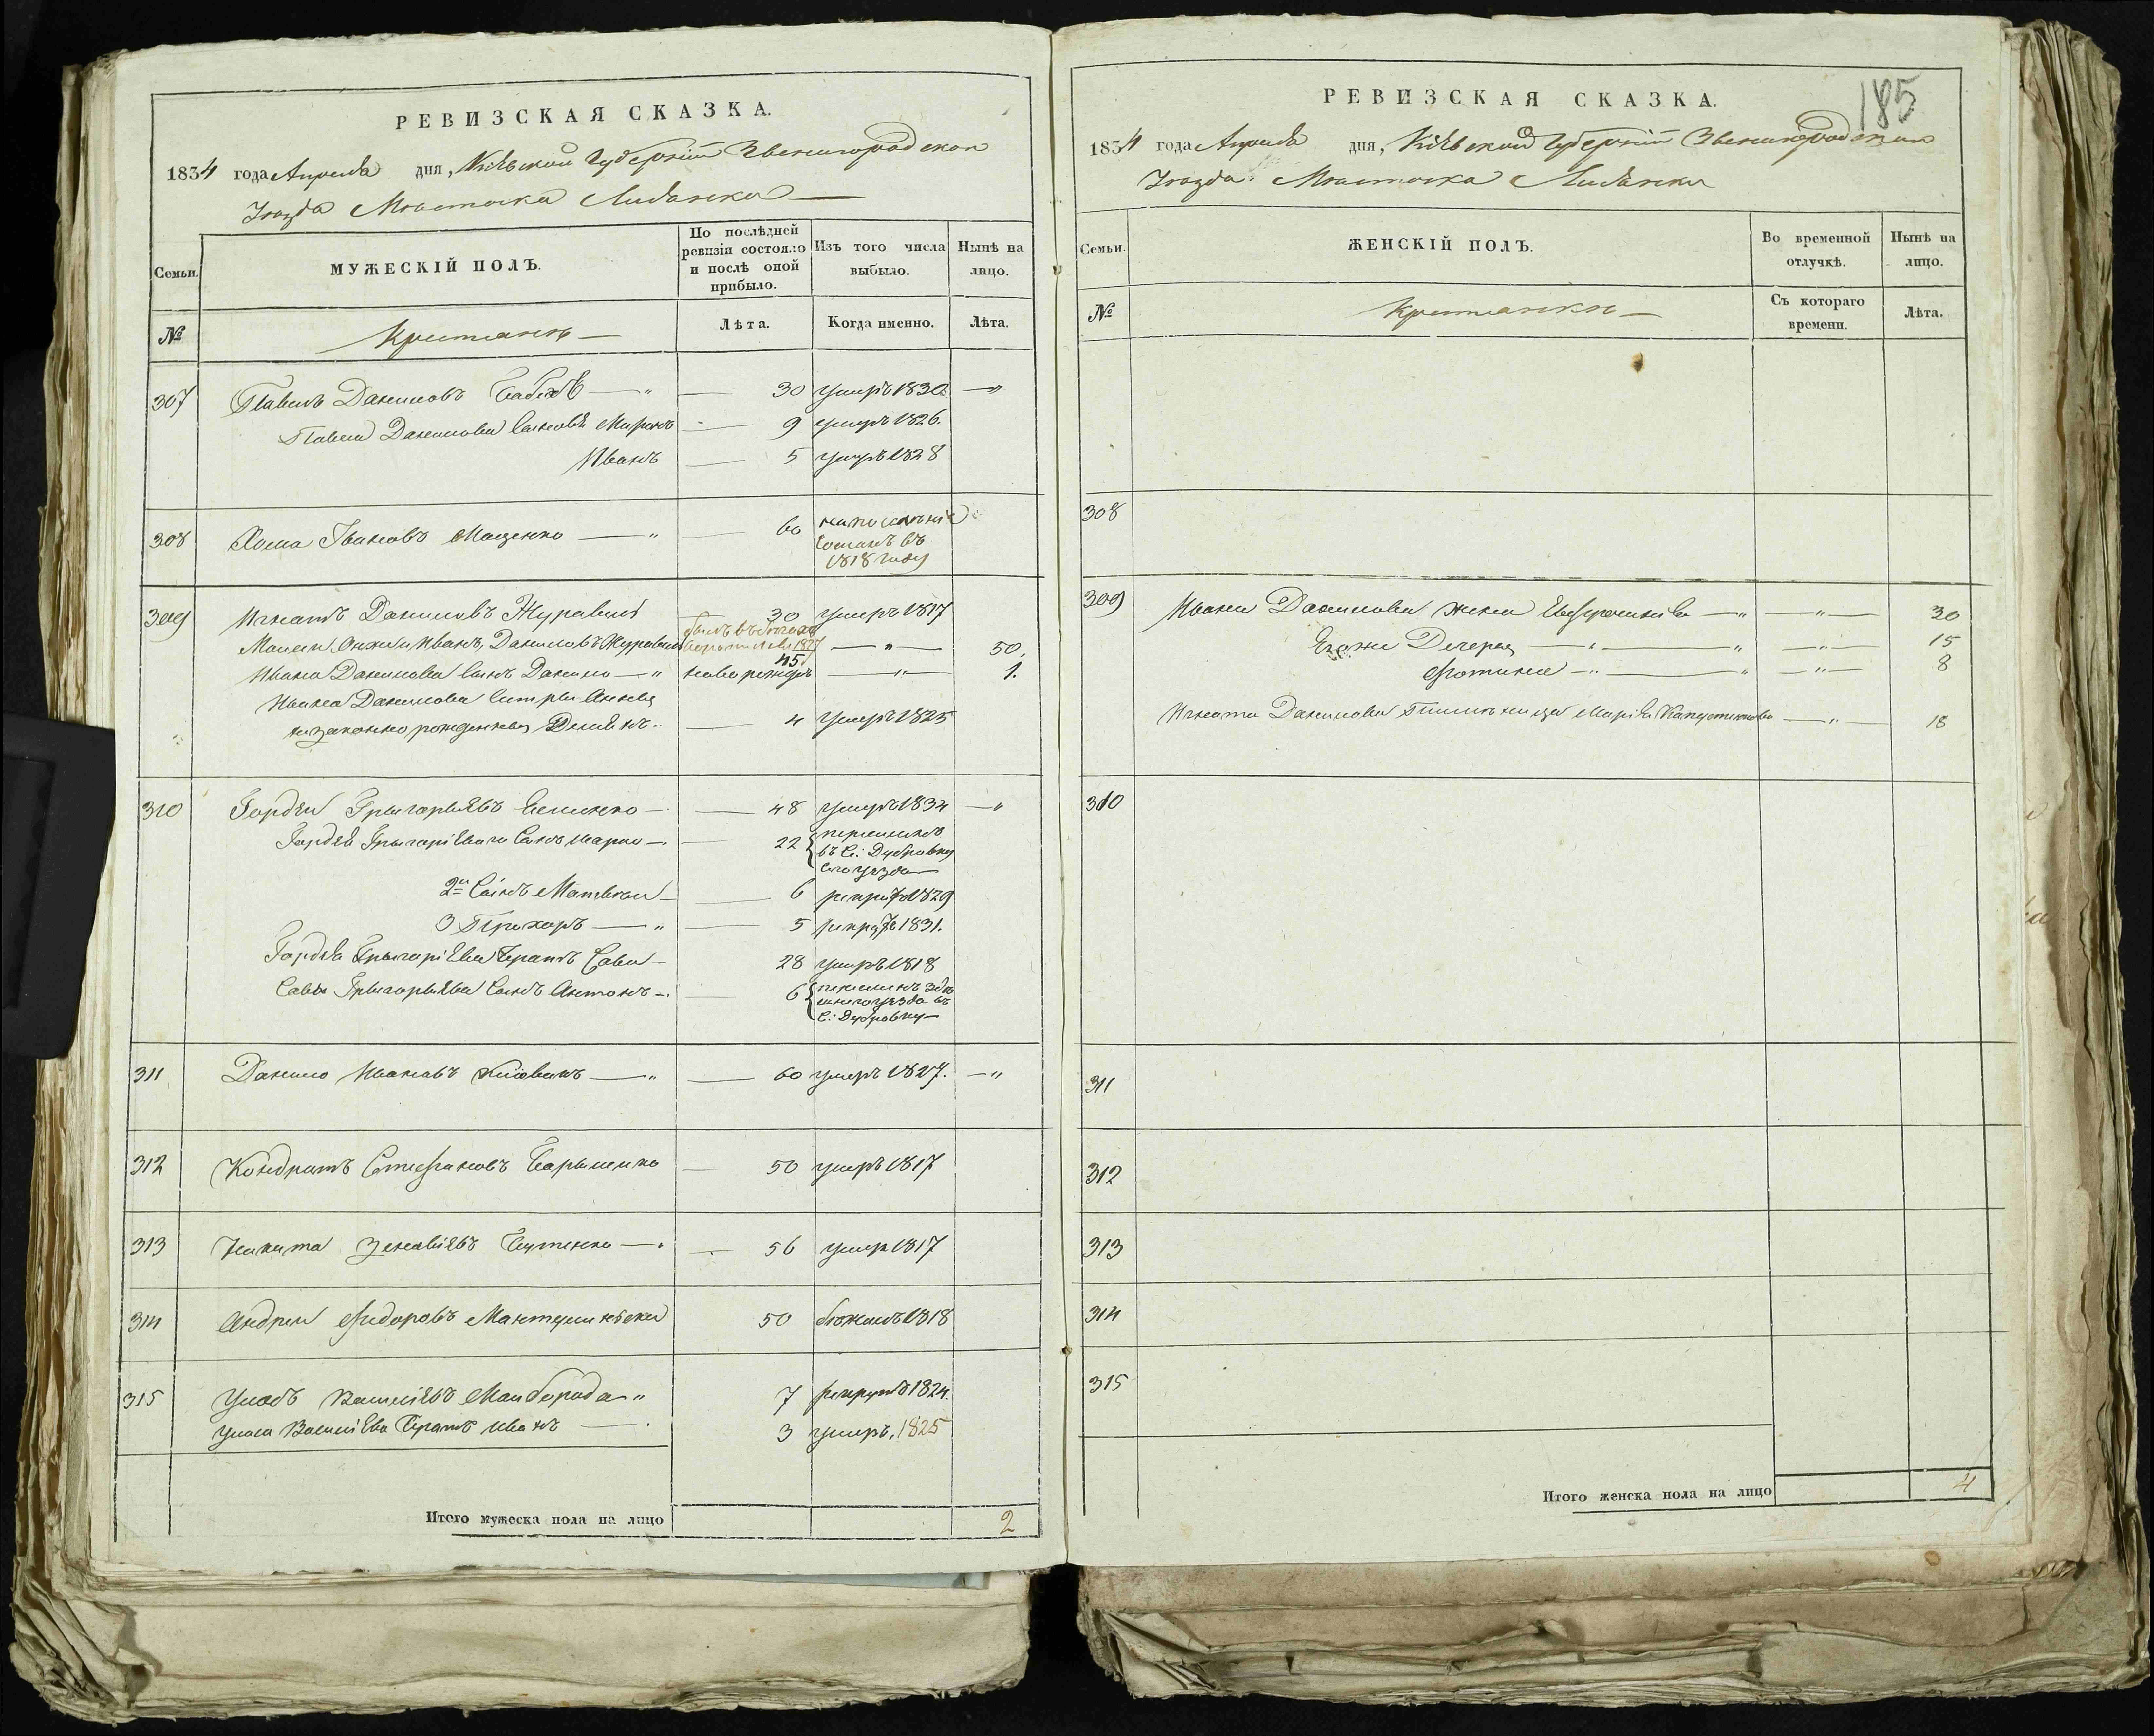 РЕВИЗСКАЯ СКАЗКА.
1834 года Апреля дня, Кіевской Губерніи Звенигородскаго
Уезда Местечка Лисянки
Семьи. МУЖЕСКІЙ ПОЛЪ. По послѣдней ревизіи состояло и послѣ оной прибыло. Изъ того числа выбыло. Нынѣ на лицо.
№ Крестьяне Лѣта. Когда именно. Лѣта.
307 Павелъ Даниловъ 30 умеръ 1830
Павла Данилова Сыновья Миронъ 9 умеръ 1826.
Иванъ 5 умеръ 1828
308 Хома Ивановъ Маценко 60 на поселеніе
сосланъ въ
1818 году
309 Игнатъ Даниловъ Журавель 30 умеръ 1817
Иванъ, Даниловъ Журавель былъ въ бегахъ 45 50.
Ивана Данилова Сынъ Данило новорожденъ 1.
Ивана Данилова Сестры Анны
незаконно рожденный 4 умеръ 1825
310 Гордѣй Григорьевъ 48 умеръ 1834
Гордѣя Григоріева Сынъ Марко 22 перешелъ
въ С: Дубровку
сего уезда
2й Сынъ Матвей 6 рекрутъ 1829
3 Прохоръ 5 рекрутъ 1831.
Гордѣя Григоріева Братъ Сава 28 умеръ 1818
Савы Григорьева Сынъ Антонъ 6
уезда въ
С: Дубровку
311 Данило Ивановъ 60 умеръ 1827.
312 Кондратъ Стефановъ 50 умеръ 1817
313 Никита Зеновіевъ Бутенко 56 умеръ 1817
314 Андрей Фидоровъ 50 бежалъ 1818
315 Уласъ Василіевъ Майборода 7 рекрутъ 1824.
Уласа Василіева Братъ Иванъ 3 умеръ, 1825
Итого мужеска пола на лицо 2
185
РЕВИЗСКАЯ СКАЗКА.
1834 года Апреля дня, Кіевской Губерніи Звенигородскаго
Уезда Местечка Лисянки
Семьи. ЖЕНСКІЙ ПОЛЪ. Во временной отлучкѣ. Нынѣ на лицо.
№ Крестьянки Съ котораго времени. Лѣта.
308
309 Ивана Данилова жена Евфросинія 30
Дочери 15
Фотинія 8
Игната Данилова Марія 18
310
311
312
313
314
315
Итого женска пола на лицо 4